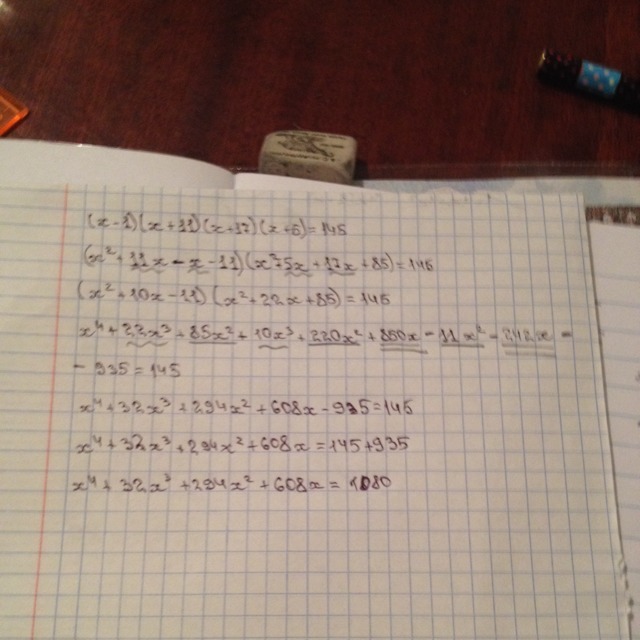 (x-1)(x+11)(x+17)(x+5)=145
(x²+11x-x-11)(x²+5x+17x+85)=145
(x²+10x-11)(x²+22x+85)=145
x⁴+22x³+85x²+10x³+220x²+850x-11x²-242x-
-935=145
x⁴+32x³+294x²+608x-935=145
x⁴+32x³+294x²+608x=145+935
x⁴+32x³+294x²+608x=1080